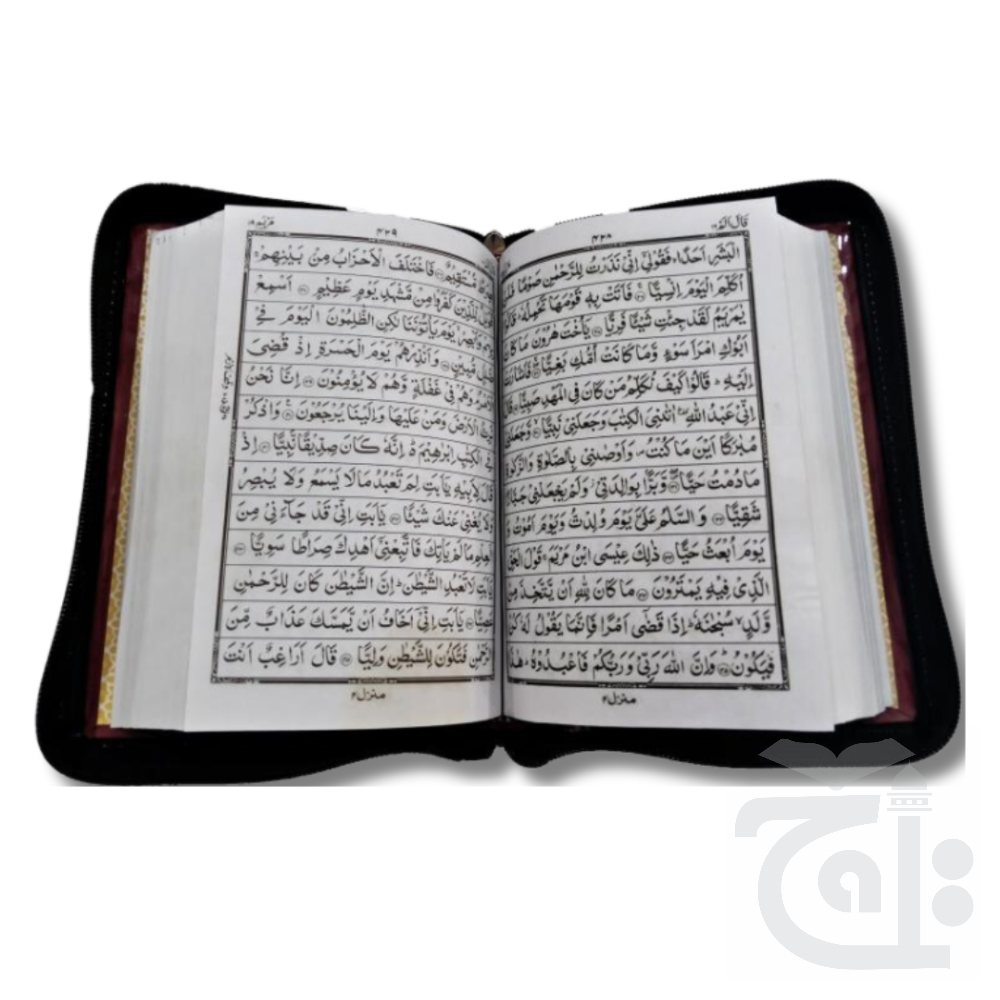 قَالَ اَلَمْ ١٦
٤٢٨
الْبَشَرِ اَحَدًا ۙ فَقُوْلِیْۤ اِنِّیْ نَذَرْتُ لِلرَّحْمٰنِ صَوْمًا
اُكَلِّمَ الْیَوْمَ اِنْسِیًّا ﴿٢٦﴾ فَاَتَتْ بِهٖ قَوْمَهَا تَحْمِلُهٗ ؕ
یٰمَرْیَمُ لَقَدْ جِئْتِ شَیْئًا فَرِیًّا ﴿٢٧﴾ یٰۤاُخْتَ هٰرُوْنَ مَا كَانَ
اَبُوْكِ امْرَاَ سَوْءٍ وَّمَا كَانَتْ اُمُّكِ بَغِیًّا ﴿٢٨﴾ فَاَشَارَتْ
اِلَیْهِ ؕ قَالُوْا كَیْفَ نُكَلِّمُ مَنْ كَانَ فِی الْمَهْدِ صَبِیًّا ﴿٢٩﴾
اِنِّیْ عَبْدُ اللّٰهِ ؕ اٰتٰىنِیَ الْكِتٰبَ وَجَعَلَنِیْ نَبِیًّا ﴿٣٠﴾ وَّجَعَلَنِیْ
مُبٰرَكًا اَیْنَ مَا كُنْتُ ۪ وَاَوْصٰنِیْ بِالصَّلٰوةِ وَالزَّكٰوةِ
مَا دُمْتُ حَیًّا ﴿٣١﴾ وَّبَرًّۢا بِوَالِدَتِیْ ؗ وَلَمْ یَجْعَلْنِیْ جَبَّارًا
شَقِیًّا ﴿٣٢﴾ وَالسَّلٰمُ عَلَیَّ یَوْمَ وُلِدْتُّ وَیَوْمَ اَمُوْتُ وَ
یَوْمَ اُبْعَثُ حَیًّا ﴿٣٣﴾ ذٰلِكَ عِیْسَی ابْنُ مَرْیَمَ ۚ قَوْلَ الْحَقِّ
الَّذِیْ فِیْهِ یَمْتَرُوْنَ ﴿٣٤﴾ مَا كَانَ لِلّٰهِ اَنْ یَّتَّخِذَ مِنْ
وَّلَدٍ ۙ سُبْحٰنَهٗ ؕ اِذَا قَضٰۤی اَمْرًا فَاِنَّمَا یَقُوْلُ لَهٗ كُنْ
فَیَكُوْنُ ﴿٣٥﴾ وَاِنَّ اللّٰهَ رَبِّیْ وَرَبُّكُمْ فَاعْبُدُوْهُ ؕ هٰذَا
منزل ٤
٤٢٩
مَرْیَم ١٩
مُّسْتَقِیْمٌ ﴿٣٦﴾ فَاخْتَلَفَ الْاَحْزَابُ مِنْۢ بَیْنِهِمْ ۚ
لِّلَّذِیْنَ كَفَرُوْا مِنْ مَّشْهَدِ یَوْمٍ عَظِیْمٍ ﴿٣٧﴾ اَسْمِعْ
وَاَبْصِرْ ۙ یَوْمَ یَاْتُوْنَنَا لٰكِنِ الظّٰلِمُوْنَ الْیَوْمَ فِیْ
ضَلٰلٍ مُّبِیْنٍ ﴿٣٨﴾ وَاَنْذِرْهُمْ یَوْمَ الْحَسْرَةِ اِذْ قُضِیَ
الْاَمْرُ ۘ وَهُمْ فِیْ غَفْلَةٍ وَّهُمْ لَا یُؤْمِنُوْنَ ﴿٣٩﴾ اِنَّا نَحْنُ
نَرِثُ الْاَرْضَ وَمَنْ عَلَیْهَا وَاِلَیْنَا یُرْجَعُوْنَ ﴿٤٠﴾ وَاذْكُرْ
فِی الْكِتٰبِ اِبْرٰهِیْمَ ؕ اِنَّهٗ كَانَ صِدِّیْقًا نَّبِیًّا ﴿٤١﴾ اِذْ
قَالَ لِاَبِیْهِ یٰۤاَبَتِ لِمَ تَعْبُدُ مَا لَا یَسْمَعُ وَلَا یُبْصِرُ
وَلَا یُغْنِیْ عَنْكَ شَیْئًا ﴿٤٢﴾ یٰۤاَبَتِ اِنِّیْ قَدْ جَآءَنِیْ مِنَ
الْعِلْمِ مَا لَمْ یَاْتِكَ فَاتَّبِعْنِیْۤ اَهْدِكَ صِرَاطًا سَوِیًّا ﴿٤٣﴾
یٰۤاَبَتِ لَا تَعْبُدِ الشَّیْطٰنَ ؕ اِنَّ الشَّیْطٰنَ كَانَ لِلرَّحْمٰنِ
عَصِیًّا ﴿٤٤﴾ یٰۤاَبَتِ اِنِّیْۤ اَخَافُ اَنْ یَّمَسَّكَ عَذَابٌ مِّنَ
الرَّحْمٰنِ فَتَكُوْنَ لِلشَّیْطٰنِ وَلِیًّا ﴿٤٥﴾ قَالَ اَرَاغِبٌ اَنْتَ
منزل ٤